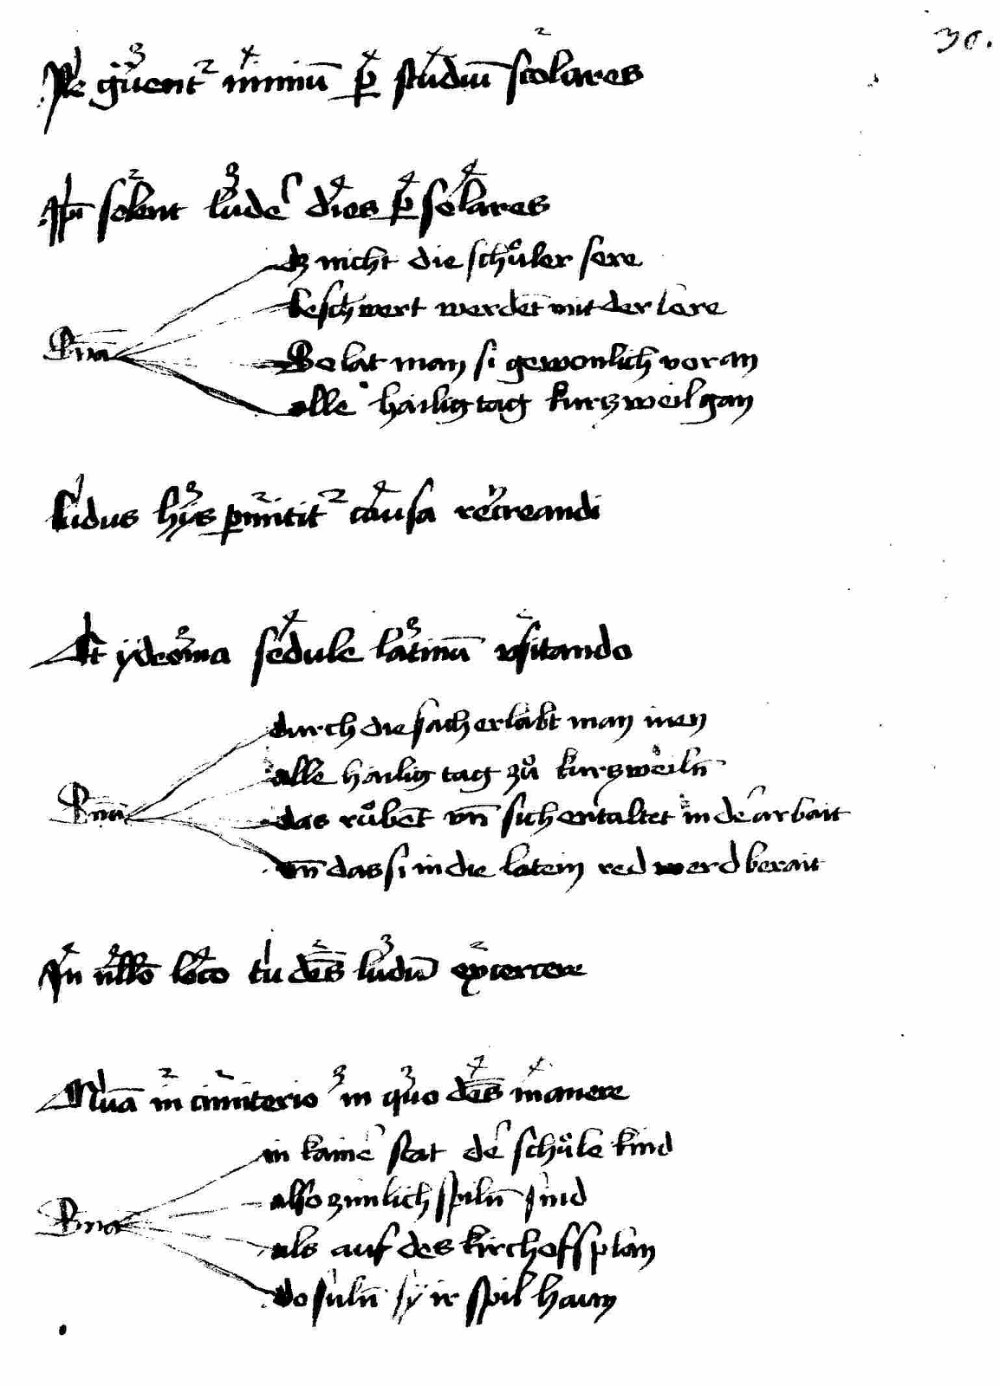 30.
Ne gͣuent᷑ nimiū ꝑ studiū scolares
Ipī solent ludẽ dies ꝑ solares
dz nicht die schůler sere
beschwert werdēt mit der lere
So lat man si gewonlich voran
alle hailig tag kurczweil gan
ludus hijs pmittit᷑ causa recreandi
Et ydeoma sedule latinū vsitando
durch die sach erlabt man inen
alle hailig tag zů kurczweiln̄
das růbent vn̄ sich entaltet in dẽ arbait
vn̄ das si in die latein red werd berait
In nullo loco tu debēs ludū exercere
Nuā in cimiterio in quo debēs manere
in kainẽ stat dẽ schůler kind
also zimlich spiln̄ sind
als auf des kirchoffs plan
do suln̄ sy ir spil han